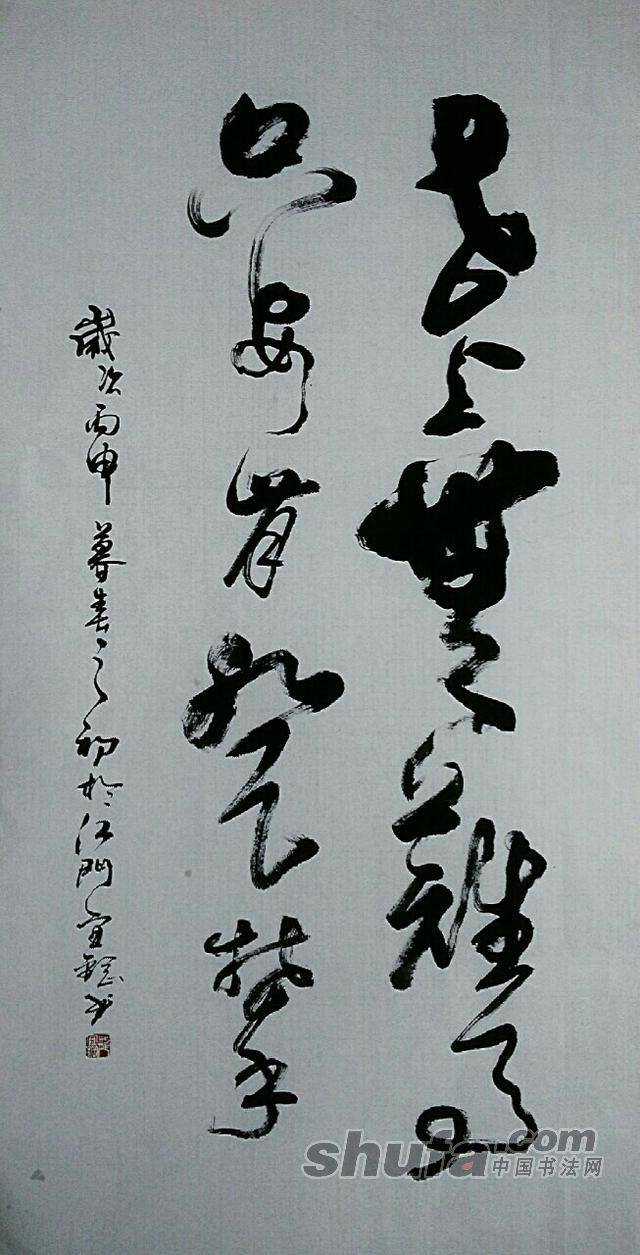 世上無難事
只要肯登攀
歲次丙申暮春之初於江門
shufa.com
中国书法网